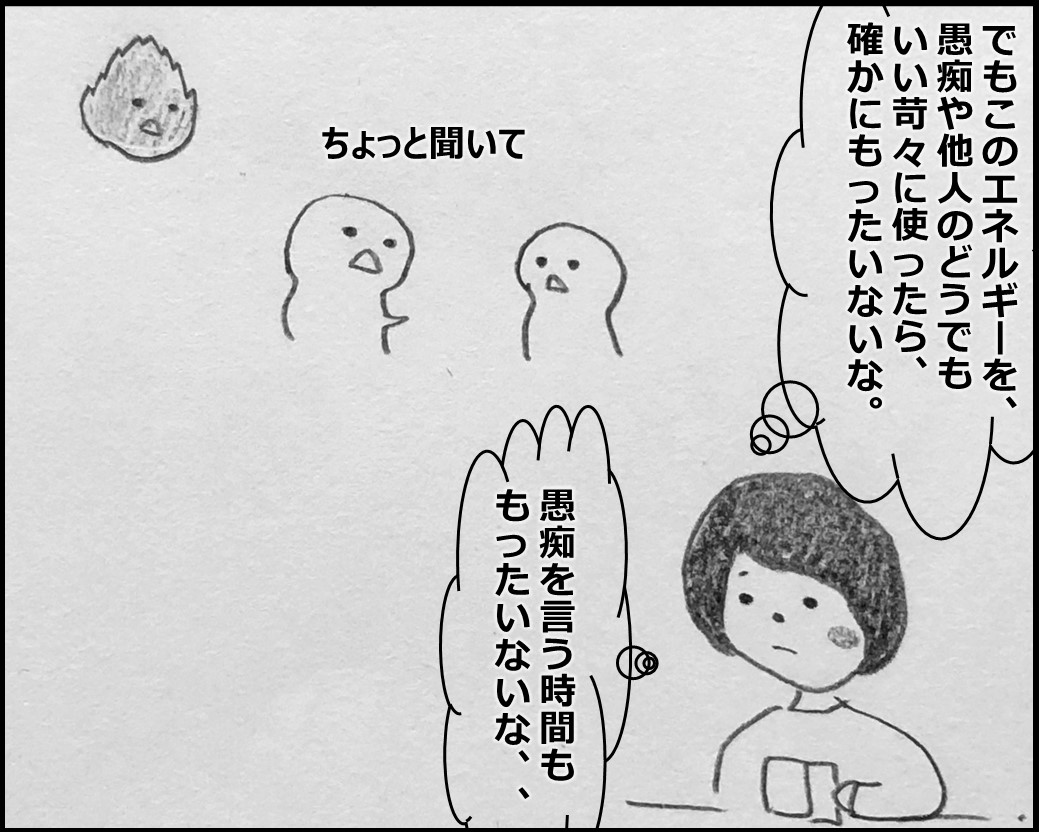 でもこのエネルギーを、
愚痴や他人のどうでも
いい苛々に使ったら、
確かにもったいないな。
ちょっと聞いて
愚痴を言う時間も
もったいないな、、